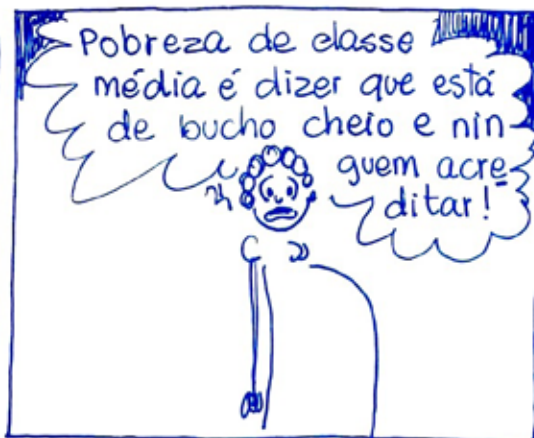 Pobreza de classe
média é dizer que está
de bucho cheio e nin-
guem acre-
ditar!